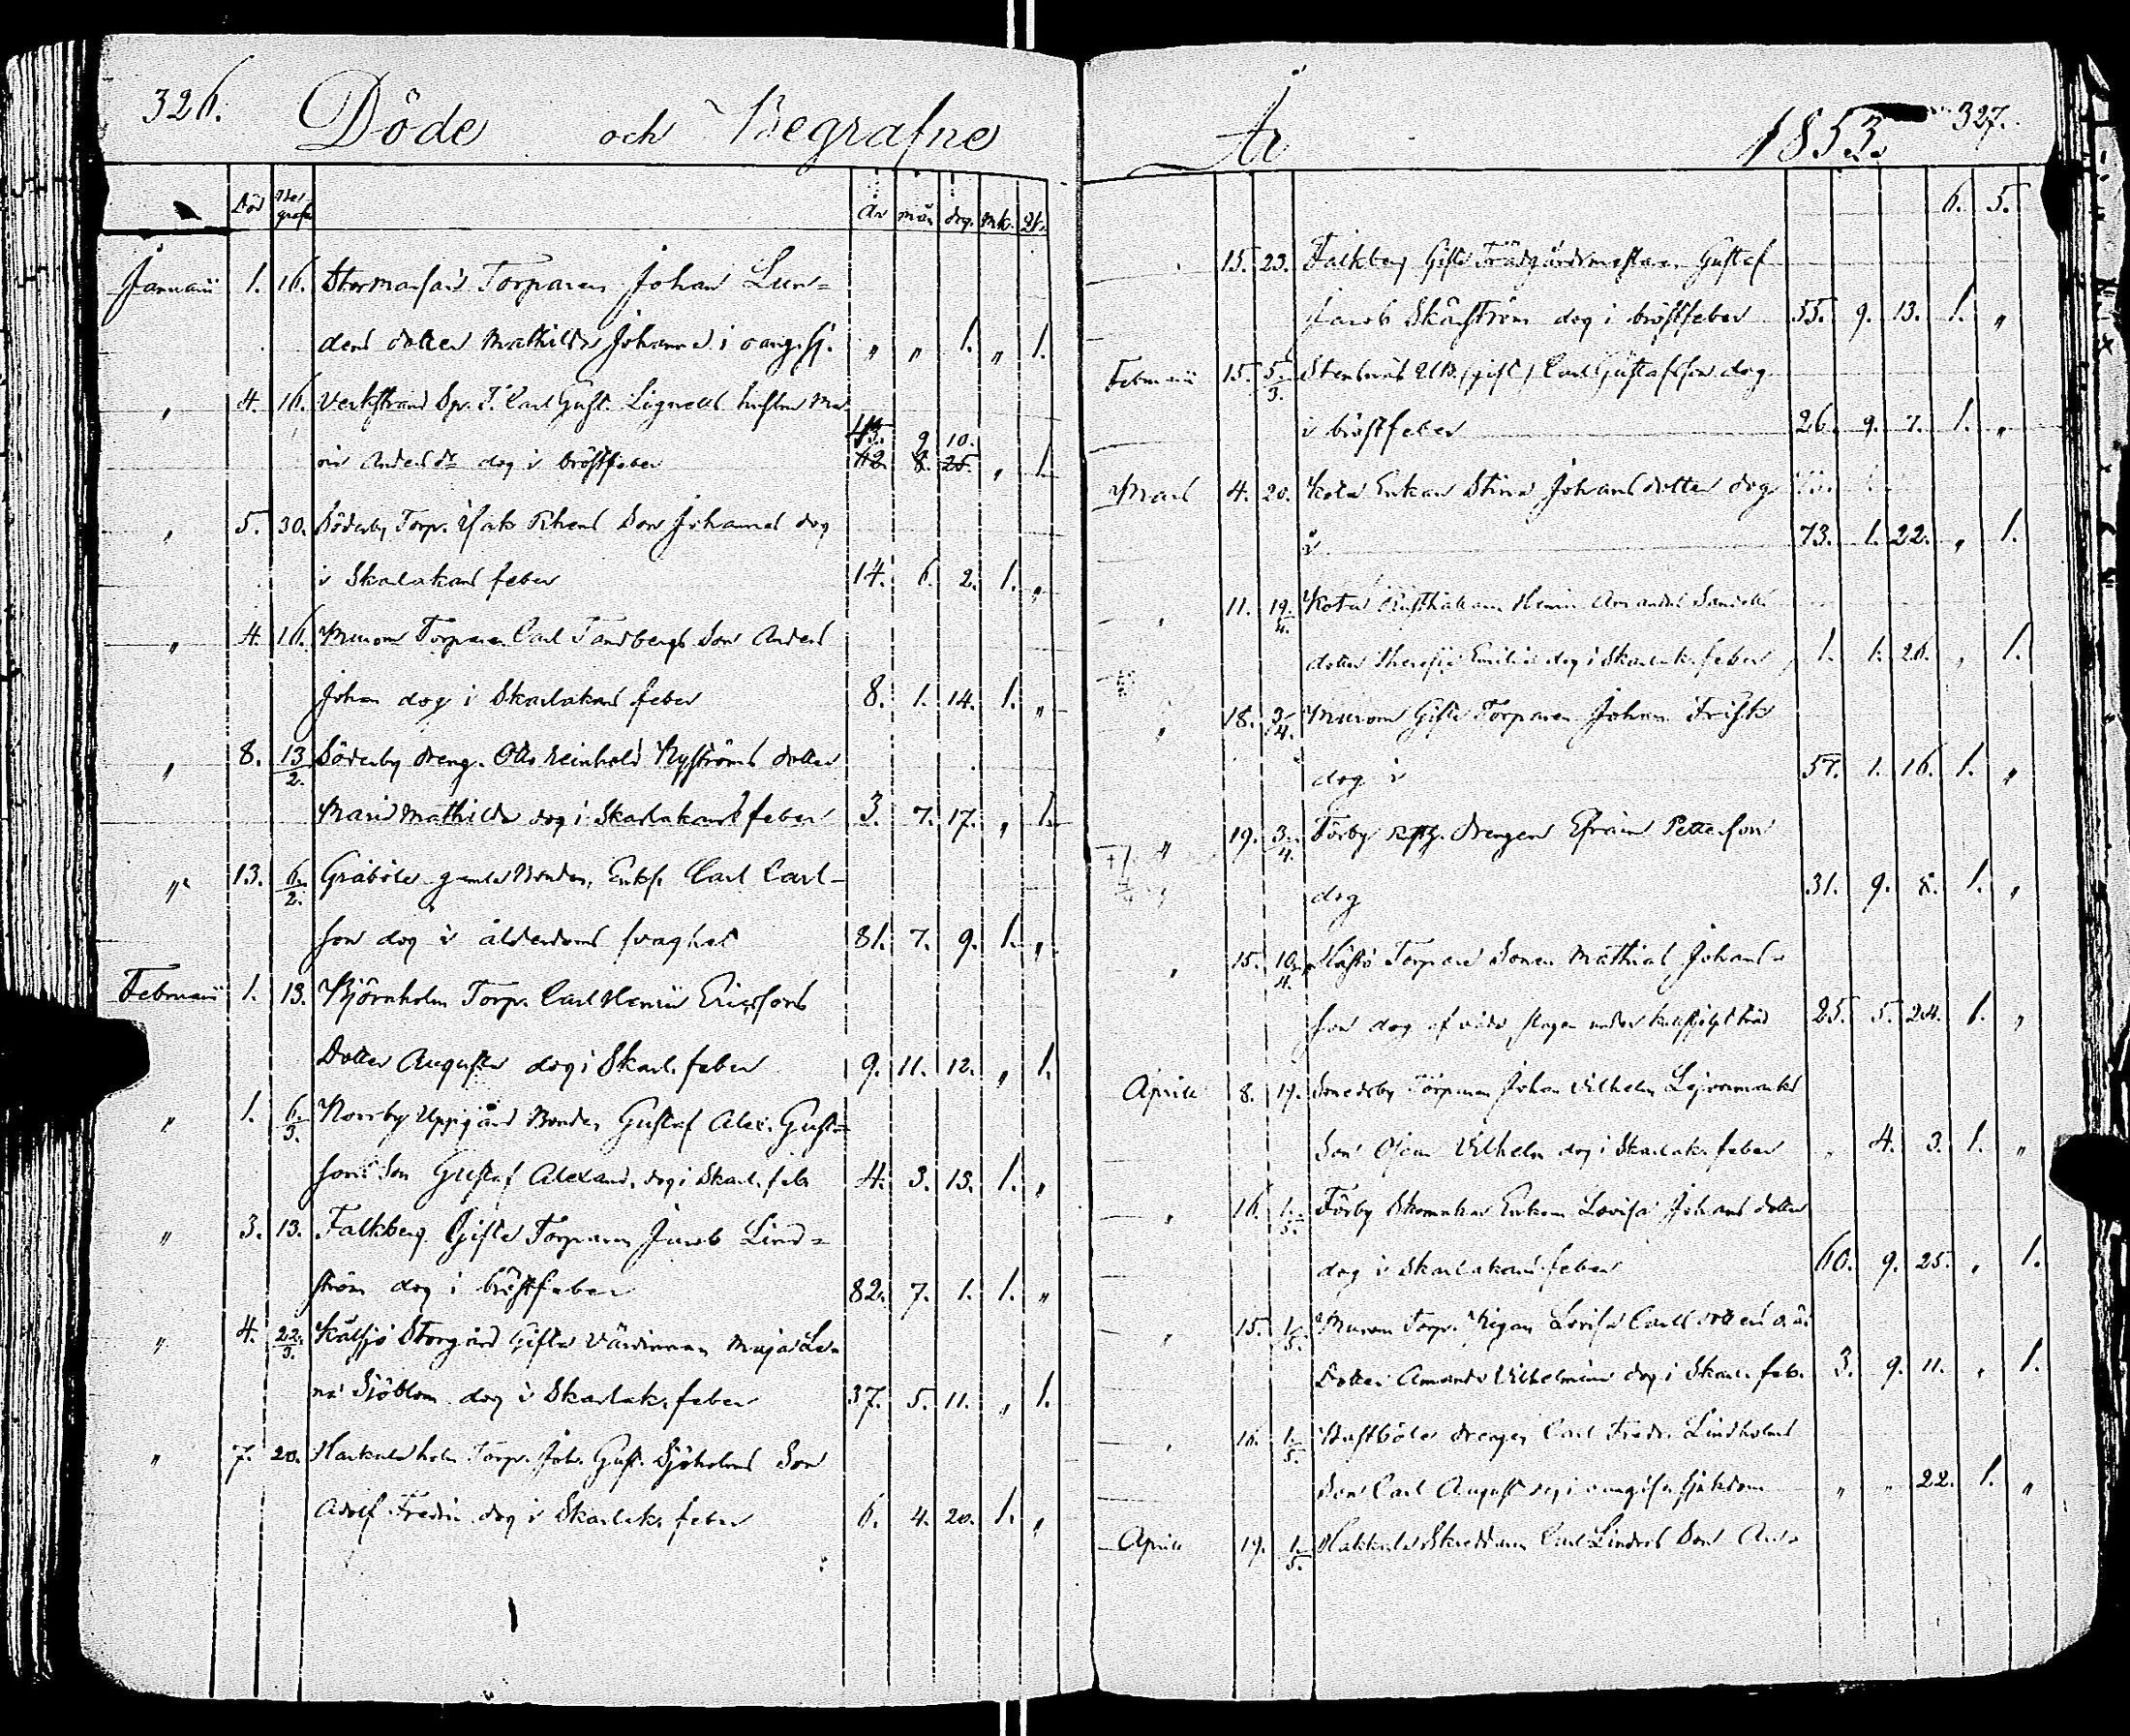 326.
Döde och Begrafne
Död Be grafn År mån dag. Mk. Qk.
Januarii 1. 16. Stormansäri Torparen Johan Lun=
dens dotter Mathilda Johanna i oang. sj. „ „ 1. „ 1.
„ 4. 16. Verkstrand Sp. T. Carl Gust. Lignells hustru Ma=
ria Anders dr dog i bröstfeber 9 10.
42. 8. 25. „ 1.
„ 5. 30. Söderby Torp. Isak Rhens Son Johannes dog
i Skarlakans feber 14. 6. 2. 1. „
„ 4. 16. Murom Torparen Carl Tandbergs Son Anders
Johan dog i Skarlakans feber 8. 1. 14. 1. „
„ 8. 13/2. Söderby dreng. Otto Reinhold Nyströms dotter
Maria Mathilda dog i Skarlakans feber 3. 7. 17. „ 1.
„ 13. 6/2. Gräböle gamla Bonden, Enkl. Carl Carl-
son dog i ålderdoms svaghet 81. 7. 9. 1. „
Februarii 1. 13. Björnholm Torp. Carl Henric Ericssons
Dotter Augusta dog i Skarl. feber 9. 11. 12. „ 1.
„ 1. 6/3. Norrby Uppgård Bonden Gustaf Alex. Gust=
sons Son Gustaf Alexand. dog i Skarl. feb. 4. 3. 13. 1. „
„ 3. 13. Falkberg Gifte Torparen Jacob Lind=
ström dog i bröstfeber 82. 7. 1. 1. „
„ 4. 22/3. Kålsjö Storgård Gifta Värdinnan Maja Le=
na Sjöblom dog i Skarlak. feber 37. 5. 11. „ 1.
„ 7. 20. Torp. Joh. Gust. Sjöholms Son
Adolf Fredric dog i Skarlak. feber 6. 4. 20. 1. „
År 1853. 327.
6. 5.
15. 23. Falkberg Gifte Trädgårdsmästaren Gustaf
Jacob Skärström dog i bröstfeber 55. 9. 13. 1. „
Februarii 15. 5/3. Stensnäs (gift) Carl Gustafsson dog
i bröstfeber 26. 9. 7. 1. „
Mars 4. 20. Enkan Stina Johansdotter dog
i 73. 1. 22. „ 1.
„ 11. 19/4. Rusthållaren Henric Amandus
dotter Theresia Emilia dog i Skarlak. feber 1. 1. 26. „ 1.
„ 18. 3/4. Murom Gifte Torparen Johan Frisk
dog i 57. 1. 16. 1. „
„ 19. 3/4. Förby Drengen Efraim Petterson
dog 31. 9. 8. 1. „
„ 15. 10/4. Torpare Sonen Mathias Johans=
son dog af våda slagen under 25. 5. 24. 1. „
Aprill 8. 17. Torparen Johan Vilhelm
Son Oscar Vilhelm dog i Skarlak. feber „ 4. 3. 1. „
„ 16. 1/5. Förby Skomakar Enkan Lovisa Johans dotter
dog i Skarlakans feber 60. 9. 25. „ 1.
„ 15. 1/5. Murom Torp. Pigan Lovisa Carls dotters o. ä.
Dotter Amanda Vilhelmina dog i Skarl. feb. 3. 9. 11. „ 1.
„ 16. 1/5. drengen Carl Fredr. Lindholms
Son Carl August dog i oangifen sjukdom „ „ 22. 1. „
Aprill 19. 1/5. Skräddaren Carl Lindros Son